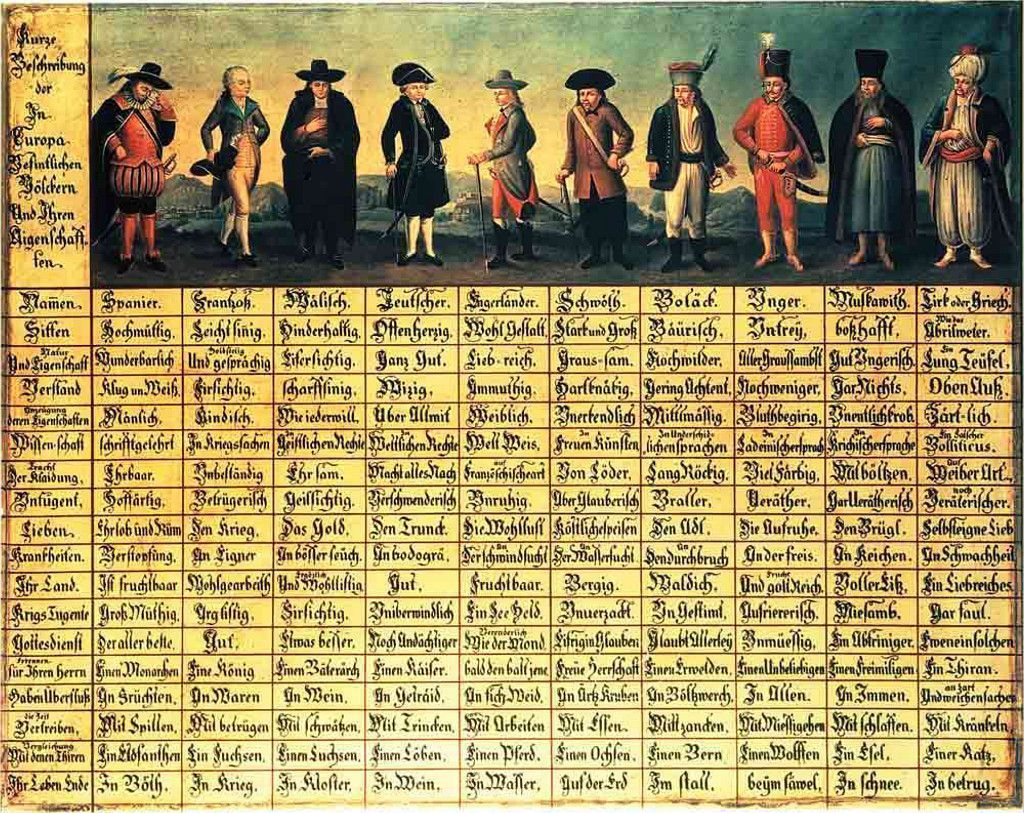 Kurze
Beschreibung
der
In
Europa
Befintlichen
Völckern
Und Ihren
Aigenschaff-
ten.
Namen. Spanier. Frantzoß. Wälisch. Teutscher. Engerländer. Schwöth. Boläck. Unger. Muskawith. Tirk oder Griech.
Sitten Hochmüttig. Leichtsinig. Hinderhaltig. Offenherzig. Wohl Gestalt. Starck und Groß Bäurisch. Untrey. boßhafft. Wie das Abrilweter.
Natur Und Eigenschaft Wunderbarlich Holdseelig Und gesprächig Eifersichtig. Ganz Gut. Lieb-reich. Graus-sam. Nochwilder. Aller Graussambst Gut Ungerisch. Ein Lung Teüfel.
Verstand Klug un Weiß. Firsichtig. scharffsinig. Wizig. Ammuthig. Hartknätig. Gering Achtent. Nochweniger. Gar Nichts. Oben Auß.
Anzeügung deren Eigenschaften Mänlich. Kindisch. Wie iederwill. Über Allmit Weiblich. Unerkendlich Mittlmässig. Bluthbegirig. Unentlich krob. Zärt-lich.
Wissenschaft schrifftgelehrt In Kriegssachen Geistlichen Rechte Weltlichen Rechte Welt Weis. In Freuen Künsten In Underschidlichen sprachen In Ladeinischersprach In Krichischersprache Ein Falscher Bolliticus.
Tracht Der Klaidung. Ehrbaar. Unbeständig Ehrsam. Macht alles Nach auf Französchischeart Von Löder. Lang Röckig. Viel Färbig. Mit böltzen. Auf Weiber Art.
Untugent. Hoffärtig. Betrügerisch Geillsichtig. Verschwenderisch Unruhig. Aber Glauberisch Braller. Veräther. Gar Verätherisch noch Verätherischer.
Lieben. Ehrlob und Rüm Den Krieg. Das Gold. Den Trunck. Die Wohllust Köstliche speisen Den Adl. Die Aufruhe. Den Brügl. Selbsteigne Lieb
Krankheiten. Verstopfung. An Eigner An bösser seüch. An bodogrä. An Der schwindsucht An Der Wassersucht. An Den durchbruch An der freis. An Keichen. An Schwachheit
Ihr Land. Ist fruchtbaar Wohlgearbeith Ergözlich Und Wohllistig Gut. Fruchtbaar. Bergig. Waldich. Frucht Und golt Reich. Voller Eiß. Ein Liebreiches
Krigs Tugente Groß Müthig. Arglistig. Firsichtig. Uniberwindlich Ein See Held. Unverzackt. Un Gestimt. Aufriererisch. Miesamb. Gar faul.
Gottesdienst Der aller beste. Gut. Etwas besser. Noch Andächtiger Veränderlich Wie der Mond. Eifrig in Glauben Glaubt Allerley Unmüessig. Ein Abtriniger. Eweneinsolchen
Erkennen für Ihren Herrn Einen Monarchen Eine König Einen Baterärch Einen Kaiser. bald den balt jene Freüe Herrschaft Einen Erwelden. Einen Unbeliebigen Einen Freimiligen Ein Thiran.
Haben Überfluß An Früchten. An Waren An Wein. An Geträid. An fich Weid. An Ärtz Kruben An Böltzwerch. In Allen. An Immen. an zart Und weichen sachen
Die Zeit Vertreiben. Mit Spillen. Mit betrügen Mit schwätzen. Mit Trincken. Mit Arbeiten Mit Essen. Mit zancken. Mit Miessigehen Mit schlaffen. Mit Kränkeln.
Vergleichung Mit denen Thiren Ein Elöfanthen Ein Fuchsen. Einen Luchsen. Einen Löben. Einen Pferd. Einen Ochsen. Einen Bern Einen Wolffen Ein Esel. Einer Katz.
Ihr Leben Ende In Böth. In Krieg. In Kloster. In Wein. In Wasser. Auf der Erd Im stall. beym säwel. In schnee. In betrug.